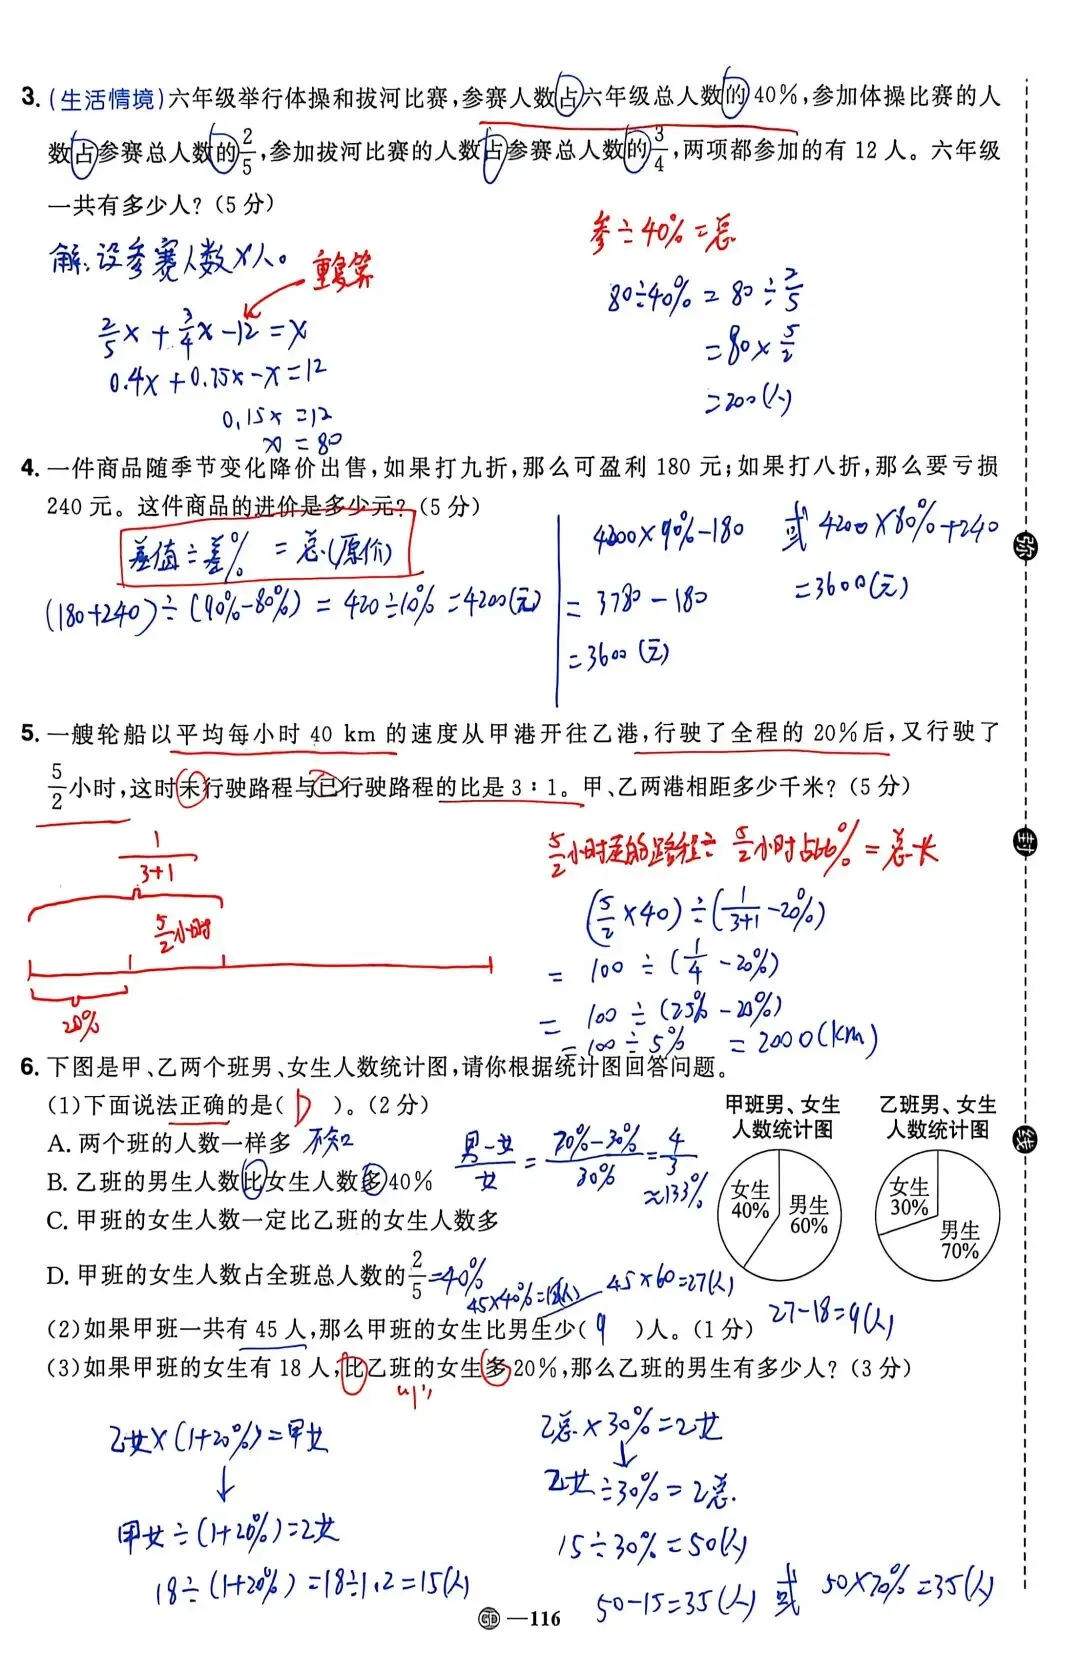 3. (生活情境)六年级举行体操和拔河比赛,参赛人数占六年级总人数的40%,参加体操比赛的人
数占参赛总人数的2/5,参加拔河比赛的人数占参赛总人数的3/4,两项都参加的有12人。六年级
一共有多少人?(5分)
解:设参赛人数X人。
重复算
2/5x + 3/4x - 12 = x
0.4x + 0.75x - x = 12
0.15x = 12
x = 80
参÷40%=总
80÷40% = 80÷2/5
= 80×5/2
= 200(人)
4. 一件商品随季节变化降价出售,如果打九折,那么可盈利180元;如果打八折,那么要亏损
240元。这件商品的进价是多少元?(5分)
差值÷差% = 总(原价)
(180+240)÷(90%-80%) = 420÷10% = 4200(元)
4200×90%-180
= 3780-180
= 3600(元)
或 4200×80%+240
=3600(元)
5. 一艘轮船以平均每小时40 km的速度从甲港开往乙港,行驶了全程的20%后,又行驶了
5/2小时,这时未行驶路程与已行驶路程的比是3:1。甲、乙两港相距多少千米?(5分)
1/(3+1)
5/2小时
20%
5/2小时走的路程÷5/2小时占的% = 总长
(5/2×40)÷(1/(3+1)-20%)
= 100÷(1/4-20%)
= 100÷(25%-20%)
= 100÷5% = 2000(km)
6. 下图是甲、乙两个班男、女生人数统计图,请你根据统计图回答问题。
(1)下面说法正确的是( D )。(2分)
A. 两个班的人数一样多 不知
B. 乙班的男生人数比女生人数多40%
(男-女)/女 = (70%-30%)/30% = 4/3 ≈133%
C. 甲班的女生人数一定比乙班的女生人数多
D. 甲班的女生人数占全班总人数的2/5 =40%
甲班男、女生
人数统计图
女生
40%
男生
60%
乙班男、女生
人数统计图
女生
30%
男生
70%
45×40%=18(人)
45×60=27(人)
27-18=9(人)
(2)如果甲班一共有45人,那么甲班的女生比男生少( 9 )人。(1分)
(3)如果甲班的女生有18人,比乙班的女生多20%,那么乙班的男生有多少人?(3分)
"1"
乙女×(1+20%)=甲女
↓
甲女÷(1+20%)=乙女
18÷(1+20%)=18÷1.2=15(人)
乙总×30%=乙女
↓
乙女÷30%=乙总.
15÷30%=50(人)
50-15=35(人) 或 50×70%=35(人)
—116
弥
封
线